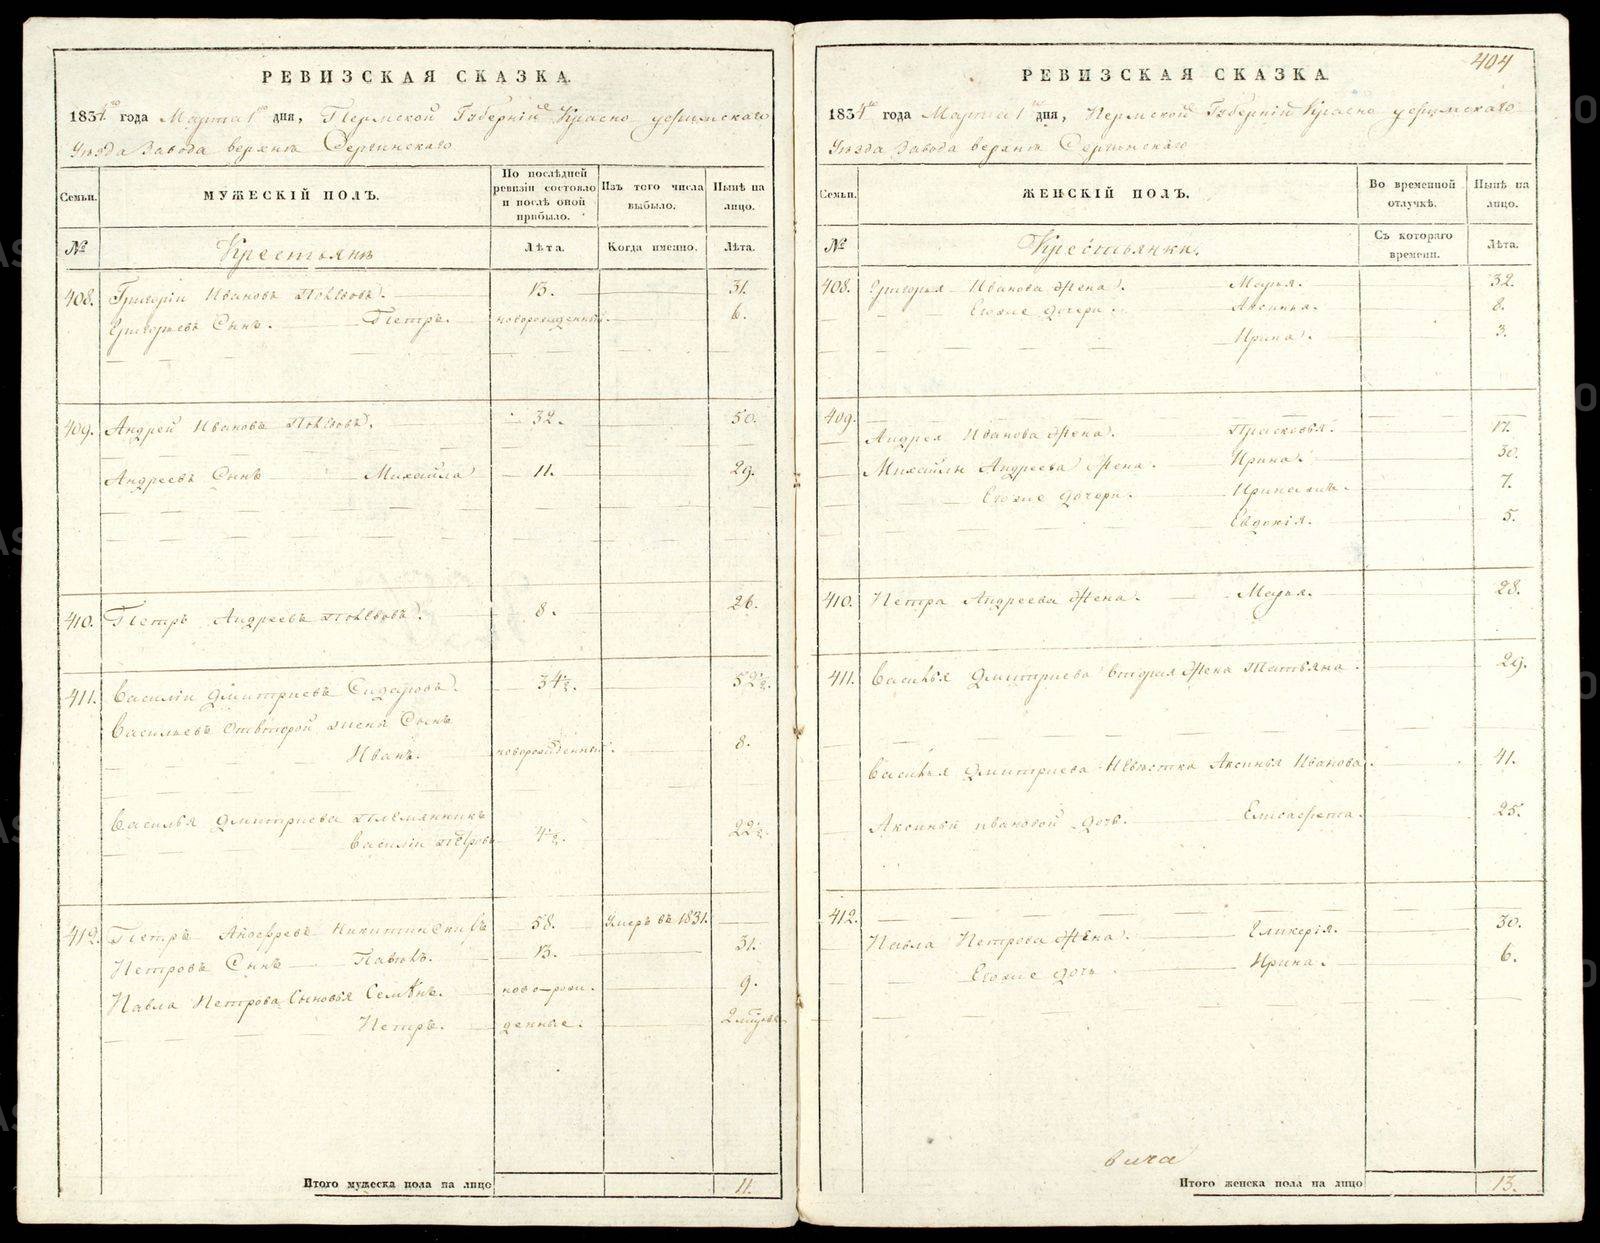 РЕВИЗСКАЯ СКАЗКА.
1834го года Марта 1го дня, Пермской Губерніи Красно уфимскаго
Уѣзда Завода верхнѣ Сергинскаго
Семьи.
МУЖЕСКІЙ ПОЛЪ.
По послѣдней ревизіи состояло и послѣ оной прибыло.
Изъ того числа выбыло.
Нынѣ на лицо.
№
Крестьянѣ
Лѣта.
Когда именно.
Лѣта.
408. Григорій Ивановъ 13. 31.
Григорьевъ Сынъ. Петръ. новорожденный. 6.
409. Андрей Ивановъ 32. 50.
Андреевъ Сынъ Михайла 11. 29.
410. Петръ Андреевъ 8. 26.
411. Василій Дмитріевъ Сидоровъ. 34½. 52½.
Васильевъ отвторой жены Сынъ
Иванъ. новорожденный. 8.
Василья Дмитріева племянникъ
Василій Петровъ 4½. 22½.
412. Петръ 58. Умеръ въ 1831.
Петровъ Сынъ Павелъ. 13. 31.
Павла Петрова Сыновья Семенъ. новорож. 9.
Петръ. денные. 2
Итого мужеска пола на лицо 11.
404
РЕВИЗСКАЯ СКАЗКА.
1834го года Марта 1го дня, Пермской Губерніи Красно уфимскаго
Уѣзда Завода верхнѣ Сергинскаго
Семьи.
ЖЕНСКІЙ ПОЛЪ.
Во временной отлучкѣ.
Нынѣ на лицо.
№
Крестьянки.
Съ котораго времени.
Лѣта.
408. Григорья Иванова Жена. Марья. 32.
Егоже дочери. Аксинья. 8.
Ирина. 3.
409.
Андрея Иванова Жена. Прасковья.
Михайлы Андреева Жена. Ирина. 30.
Егоже дочери. 7.
Евдокія. 5.
410. Петра Андреева Жена. Марья. 28.
411. Василья Дмитриева вторая Жена Татьяна. 29.
Василья Дмитриева Невѣстка Аксинья Иванова. 41.
Аксиньи ивановой дочь. Елисавета. 25.
412.
Павла Петрова Жена. Гликерія. 30.
Егоже дочь Ирина. 6.
Итого женска пола на лицо 13.